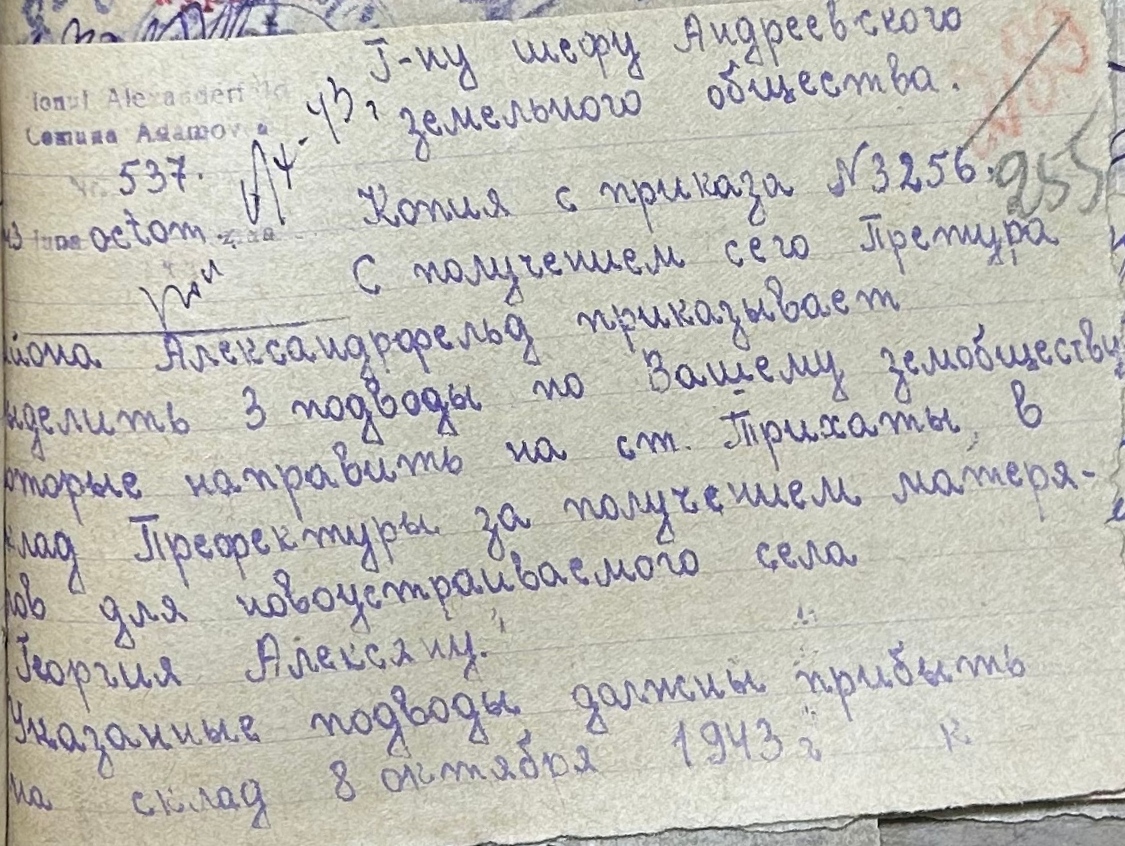 Г-ну шефу Андреевского
земельного общества.
Ionul Alexanderfeld
Comuna Adamovca
No. 537.
octom.
255
Копия с приказа №3256.
С получением сего Претура
йона Александрфельд приказывает
ыделить 3 подводы по Вашему земобществу
оторые направить на ст. Трихаты, в
клад Префектуры за получением матеря-
лов для новоустраиваемого села
Георгия Алексяну.
Указанные подводы должны прибыть
на склад 8 октября 1943 г к